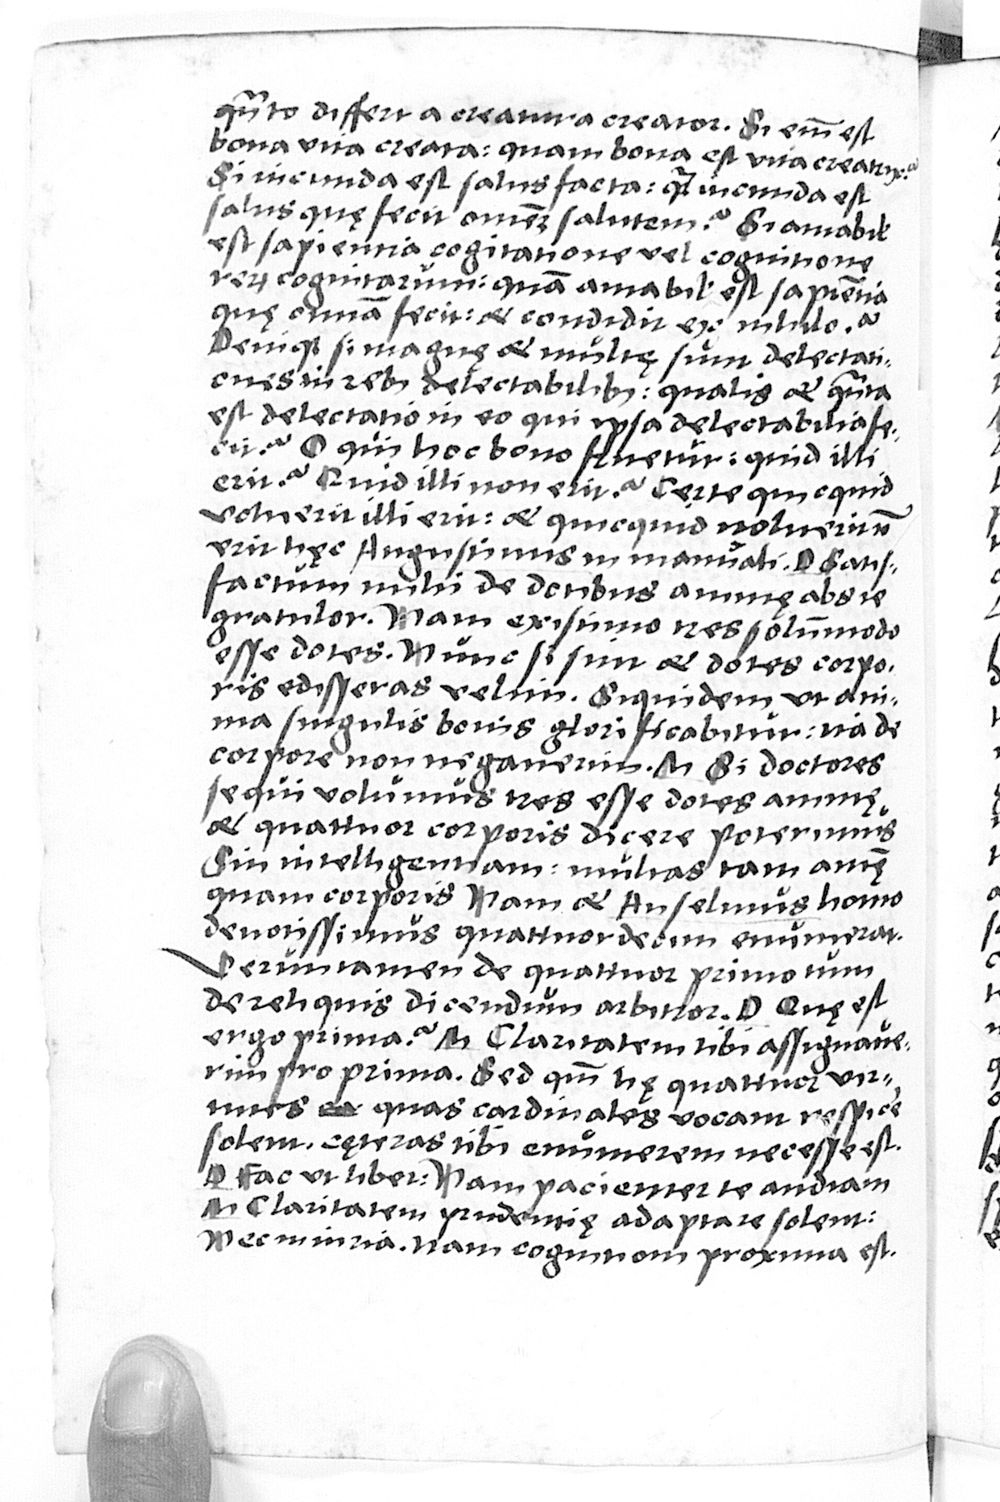 qu̅to differt a creatura creator. Si eni̅ est
bona vita creata: quam bona est vita creatrix?
Si iucunda est salus facta: q̅ iucunda est
salus quę fecit omnē salutem? Si amabil̕
est sapientia cogitatione vel cognitione
rerꝝ cognitarum: quā amabil̕ est sapiētia
quę omnia fecit: & condidit ex nihilo?
Deniqꝫ si magnę & multę sunt delectati-
ones in rebꝫ delectabilibꝫ: qualis & qu̅ta
est delectatio in eo qui ipsa delectabilia fe-
cit? O qui hoc bono fruetur: quid illi
erit? Quid illi non erit? Certe quicquid
voluerit illi erit: & quicquid noluerit nō
erit hęc Augustinus in manuali. D Satis-
factum mihi de dotibus animę abs te
gratulor. Nam existimo tres solūmodo
esse dotes. Nunc si sint & dotes corpo-
ris edisseras velim. Siquidem vt ani-
ma singulis bonis glorificabitur: ita de
corpore non negauerim. M Si doctores
sequi volumus tres esse dotes animę
& quattuor corporis dicere poterimus
Sin intelligentiam: multas tam animę
quam corporis Nam & Anselmus homo
deuotissimus quattuordecim enumerat.
Veruntamen de quattuor primo tum
de reliquis dicendum arbitror. D Quę est
ergo prima? M Claritatem tibi assignaue-
rim pro prima. Sed qm̅ hę quattuor vir-
tutes quas cardinales vocant respice
solent. cęteras tibi enumerem necesse est.
D Fac vt libet: Nam pacienter te audiam
M Claritatem prudentię adaptare solent:
Nec iniuria. nam cognitioni proxima est.